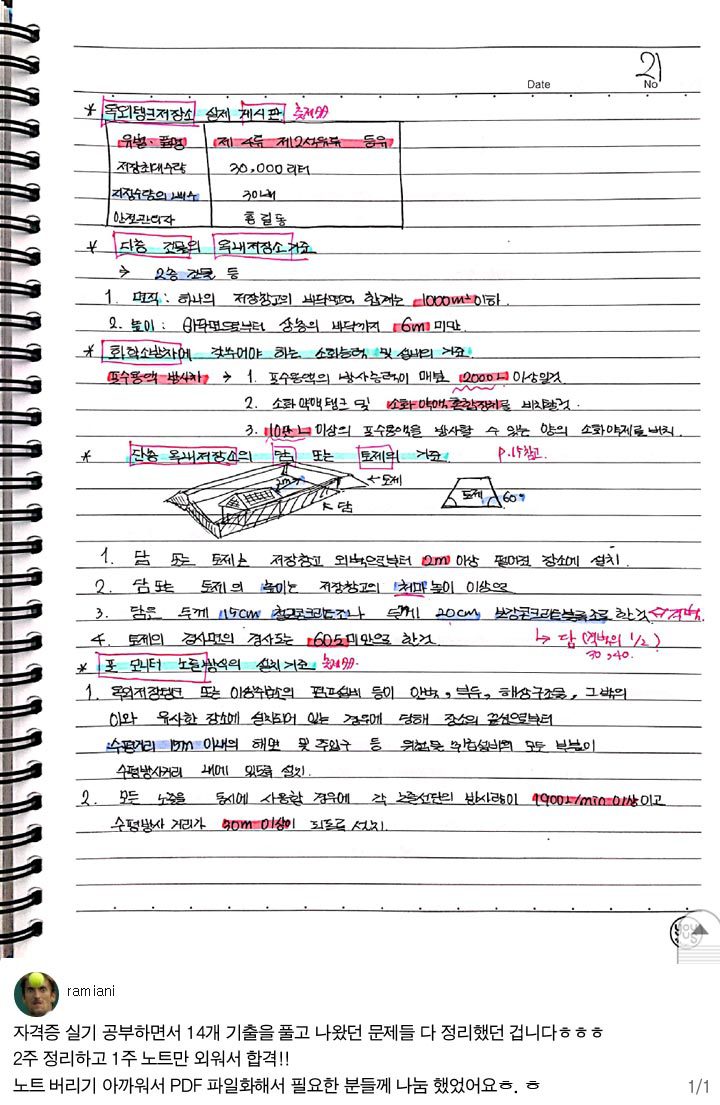 21
Date
No
* 옥외탱크저장소 실제 게시판 출제예상
유별·품명 제 4류 제2석유류 등유
저장최대수량 30,000리터
저장수량의 배수 30배
안전관리자 홍길동
* 단층 건물의 옥내저장소 기준
→ 2층 건물 등
1. 면적: 하나의 저장창고의 바닥면적 합계는 1000m² 이하.
2. 높이: 바닥면으로부터 상층의 바닥까지 6m 미만.
* 화학소방차에 갖추어야 하는 소화능력 및 설비의 기준
포수용액 방사차 → 1. 포수용액의 방사능력이 매분 2000L 이상일것
2. 소화약액탱크 및 소화약액혼합장치를 비치할것.
3. 10만L 이상의 포수용액을 방사할 수 있는 양의 소화약제를 비치.
* 단층 옥내저장소의 담 또는 토제의 기준 P.15참고.
2m
←토제
←담
토제 60°
1. 담 또는 토제는 저장창고 외벽으로부터 2m 이상 떨어진 장소에 설치.
2. 담 또는 토제의 높이는 저장창고의 처마높이 이상으로
3. 담은 두께 15cm 철근콘크리트조나 두께 20cm 보강콘크리트블록조로 한것
4. 토제의 경사면의 경사도는 60도 미만으로 한것. ↳ 담 (격벽의 1/2)
30, 40.
* 포 모니터 노즐방식의 설치기준
1. 옥외저장탱크 또는 이송취급소의 펌프설비 등이 안벽, 부두, 해상구조물, 그 밖의
이와 유사한 장소에 설치되어 있는 경우에 당해 장소의 끝선으로부터
수평거리 15m 이내의 해면 및 주입구 등 위험물 취급설비의 모든 부분이
수평방사거리 내에 있도록 설치.
2. 모든 노즐을 동시에 사용할 경우에 각 노즐선단의 방사량이 1900L/min 이상이고
수평방사 거리가 30m 이상이 되도록 설치.
ramiani
자격증 실기 공부하면서 14개 기출을 풀고 나왔던 문제들 다 정리했던 겁니다ㅎㅎㅎ
2주 정리하고 1주 노트만 외워서 합격!!
노트 버리기 아까워서 PDF 파일화해서 필요한 분들께 나눔 했었어요ㅎ. ㅎ
1/1